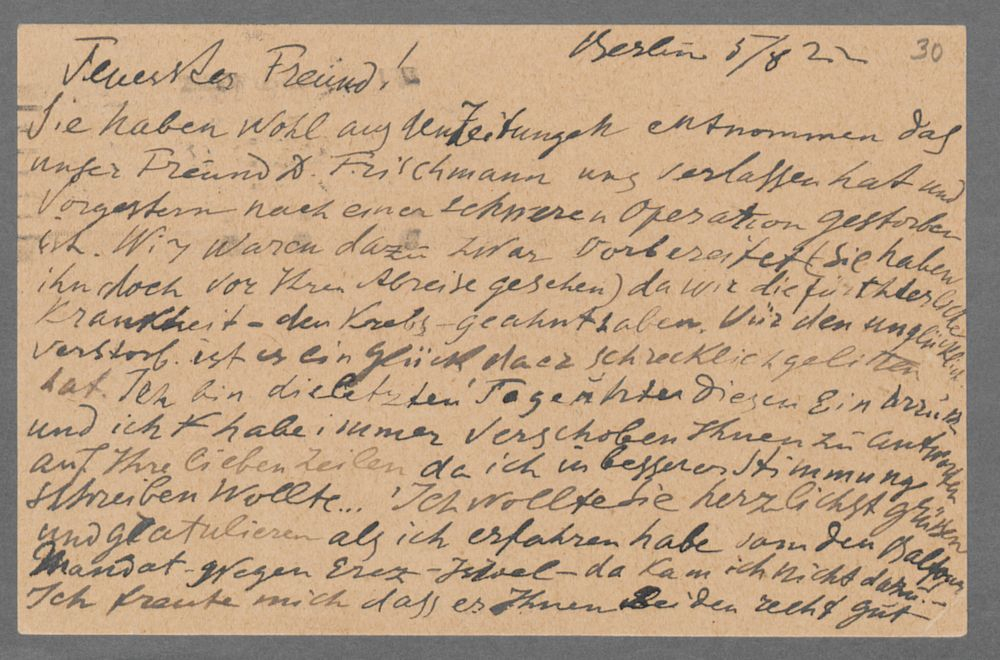 Berlin 5/8 22
30
Teuerster Freund!
Sie haben wohl aus den Zeitungen entnommen das
unser Freund D. Frischmann uns verlassen hat und
Vorgestern nach einer schweren Operation gestorben
ist. Wir waren dazu zwar vorbereitet (Sie haben
ihn doch vor Ihrer Abreise gesehen) da wir die fürchterliche
Krankheit - den Krebs - geahnt haben. Für den unglücklich
verstorb. ist es ein Glück da er schrecklich gelitten
hat. Ich bin die letzten Tage unter diesen Eindruck
und ich habe immer verschoben Ihnen zu antworten
auf Ihre lieben Zeilen da ich in besserer Stimmung
schreiben wollte... Ich wollte Sie herzlichst grüssen
und gratulieren als ich erfahren habe vom den Balfour
Mandat - wegen Erez-Isroel - da kam ich nicht dazu -
Ich freute mich dass es Ihnen Beiden recht gut